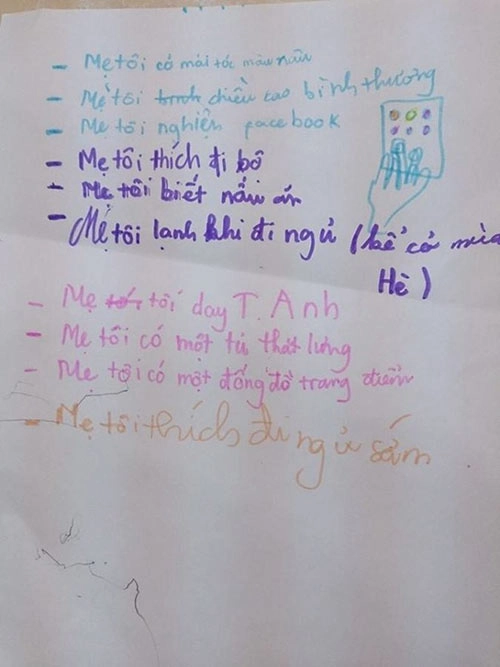 - Mẹ tôi có mái tóc màu nâu
- Mẹ tôi chiều cao bình thương
- Mẹ tôi nghiện facebook
- Mẹ tôi thích đi bộ
- Mẹ tôi biết nấu ăn
- Mẹ tôi lạnh khi đi ngủ (kể cả mùa
Hè)
- Mẹ tôi day T. Anh
- Mẹ tôi có một tủ thắt lưng
- Mẹ tôi có một đống đồ trang điểm
- Mẹ tôi thích đi ngủ sớm